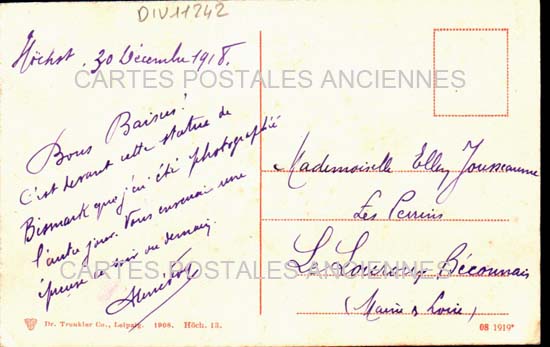 DIV11242
Höchst, 30 Décembre 1918.
CARTES POSTALES ANCIENNES
Bons Baisers!
C'est devant cette statue de
Bismark que j'ai été photographié
l'autre jour. Vous enverrai une
épreuve ce soir ou demain.
Mademoiselle Elley Jousseaume
Les Perrins
Le Louroux Béconnais
(Maine & Loire)
CARTES POSTALES ANCIENNES
Dr. Trenkler Co., Leipzig. 1908. Höch. 13.
08 1919*